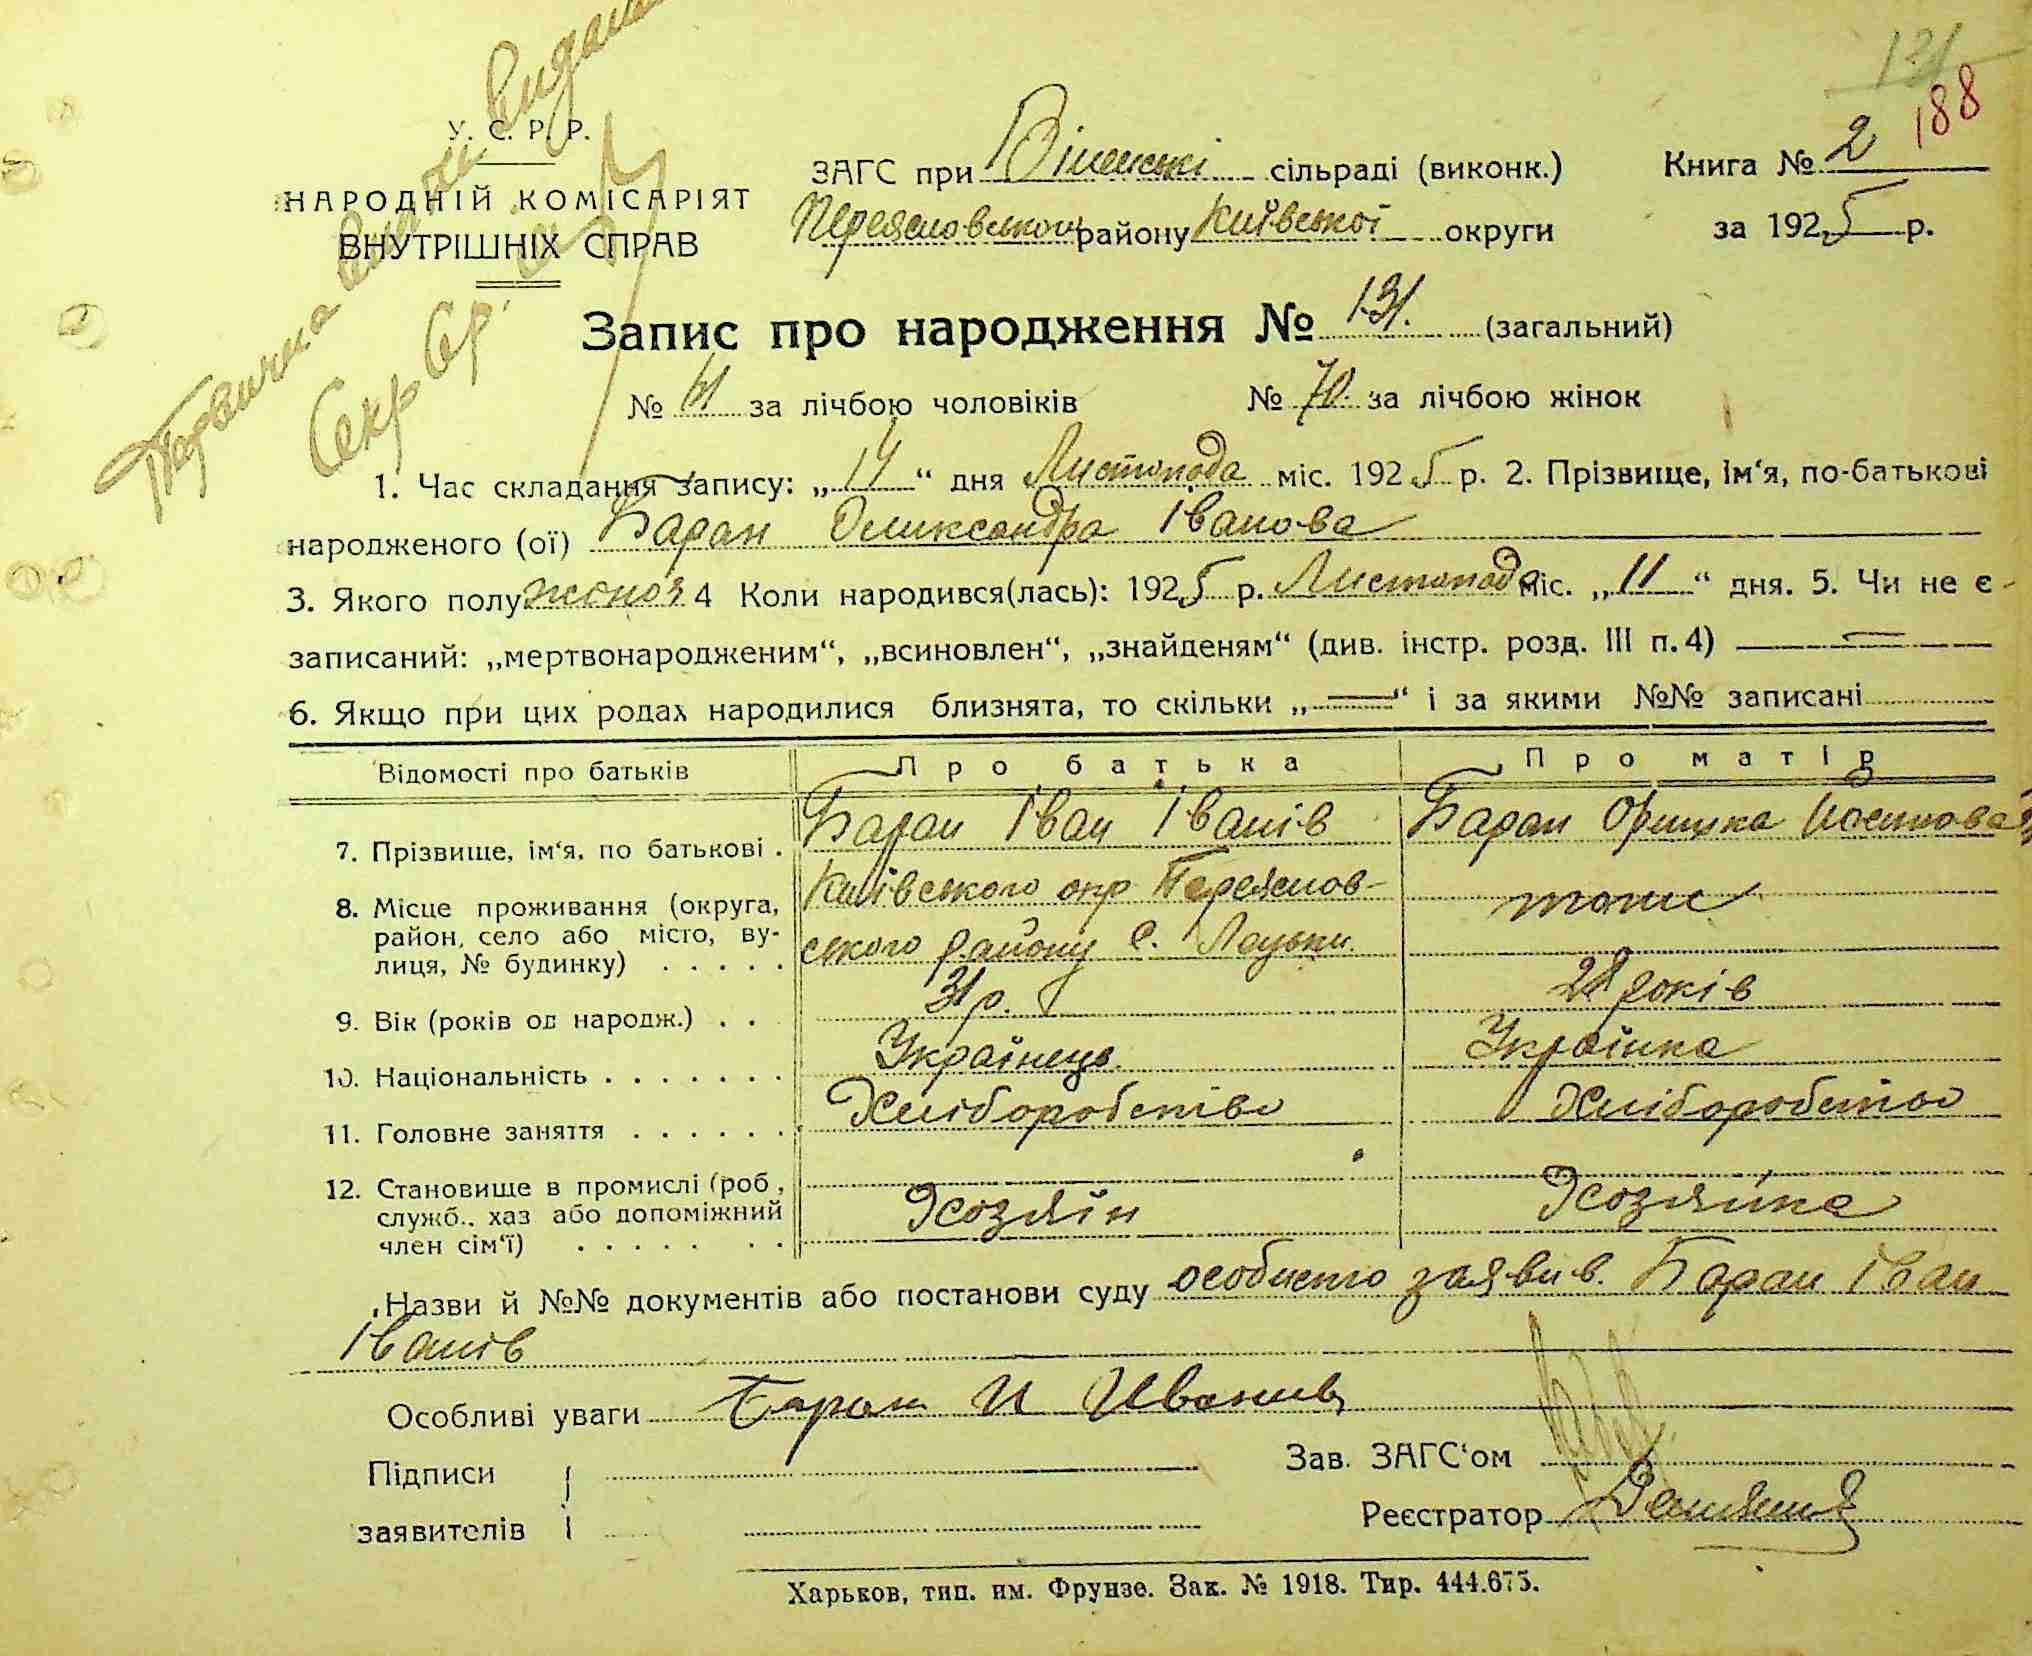 131
188
У. С. Р. Р.
НАРОДНІЙ КОМІСАРІЯТ
ВНУТРІШНІХ СПРАВ
Первична видана
Секр
ЗАГС при Віненські сільраді (виконк.) Книга № 2
Переясловського району Київської округи за 1925 р.
Запис про народження № 131. (загальний)
№ 61 за лічбою чоловіків № 70. за лічбою жінок
1. Час складання запису: „14“ дня Листопада міс. 1925 р. 2. Прізвище, ім‘я, по-батькові
народженого (ої) Баран Олександра Іванова
3. Якого полу жіноч 4 Коли народився(лась): 1925 р. Листопада міс. „11“ дня. 5. Чи не є
записаний: „мертвонародженим“, „всиновлен“, „знайденям“ (див. інстр. розд. III п. 4)
6. Якщо при цих родах народилися близнята, то скільки „ “ і за якими №№ записані
Відомості про батьків Про батька Про матір
7. Прізвище, ім‘я, по батькові . Баран Іван Іванів Баран Оришка Иосипова
8. Місце проживання (округа, Київського окр Переяслов- тоже
район, село або місто, ву- ського району с. Лецьки
лиця, № будинку) . . . . .
9. Вік (років од народж.) . . 31 р. 28 років
10. Національність . . . . . . . Українець Українка
11. Головне заняття . . . . . . Хліборобство Хліборобство
12. Становище в промислі (роб., Хозяїн Хозяйка
служб., хаз або допоміжний
член сім‘ї) . . . . . . .
Назви й №№ документів або постанови суду особисто заявив. Баран Іван
Іванів
Особливі уваги Баран И Иванив
Підписи Зав. ЗАГС‘ом
заявителів Реєстратор
Харьков, тип. им. Фрунзе. Зак. № 1918. Тир. 444.675.